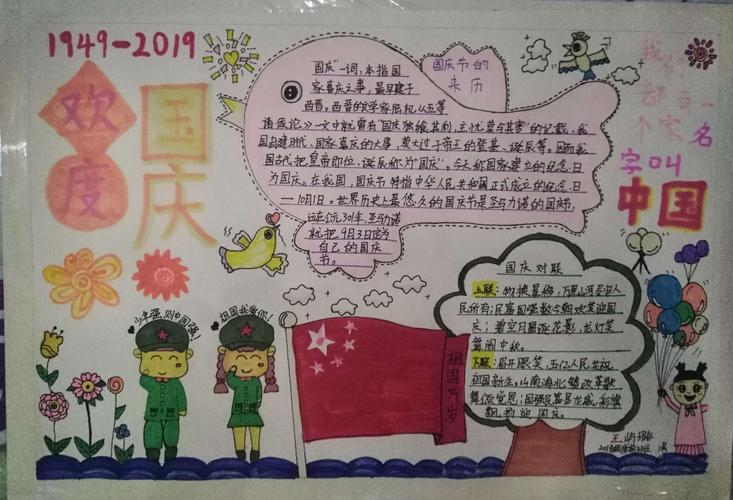 1949-2019
欢度
国庆
国庆节的
来历
"国庆"一词,本指国
家喜庆之事,最早见于
西晋。西晋的文学家陆机《五等
诸侯论》一文中就曾有"国庆独飨其利,主忧莫与其害"的记载、我
国封建时代、国家喜庆的大事,莫大过于帝王的登基、诞辰等。因而我
国古代把皇帝即位、诞辰称为"国庆"。今天称国家建立的纪念日
为国庆。在我国,国庆节特指中华人民共和国正式成立的纪念日
—10月1日。世界历史上最悠久的国庆节是圣马力诺的国庆节,
远在公元301年,圣马力诺
就把9月3日定为
自己的国庆
节。
名字叫
中国
少年强,则中国强!
祖国我爱你!
祖国万岁
国庆对联
上联:物换星移,万里山河尽归人
民所有;民富国强数今朝欢笑迎国
庆;碧空月圆
舞闹中秋。
下联:眉开眼笑,五亿人民共祝
祖国新生,山南海北赞改革歌
舞颂党恩;国强民富
飘扬迎国庆。